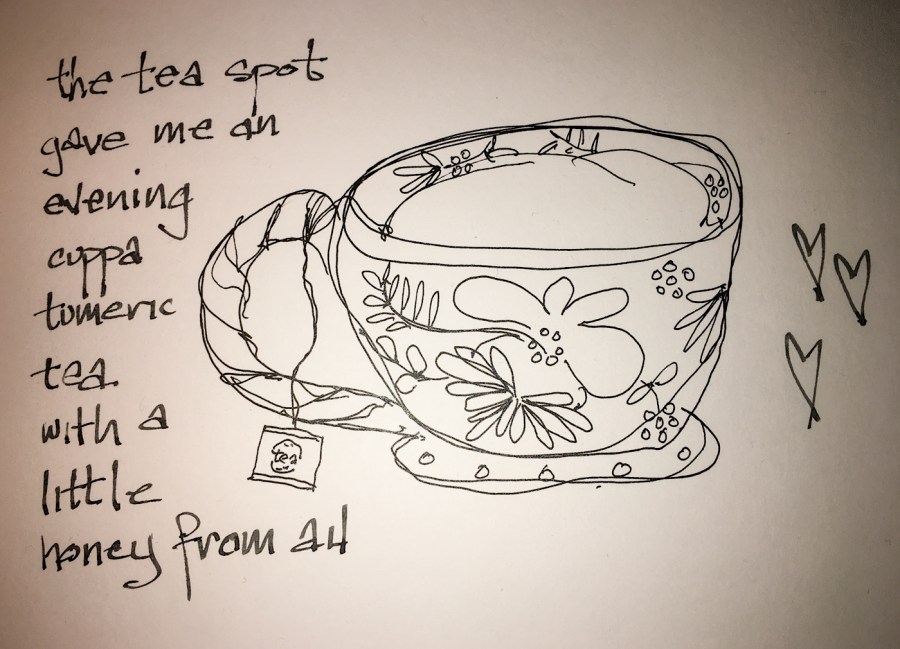 the tea spot
gave me an
evening
cuppa
tumeric
tea.
with a
little
honey from a4
tea